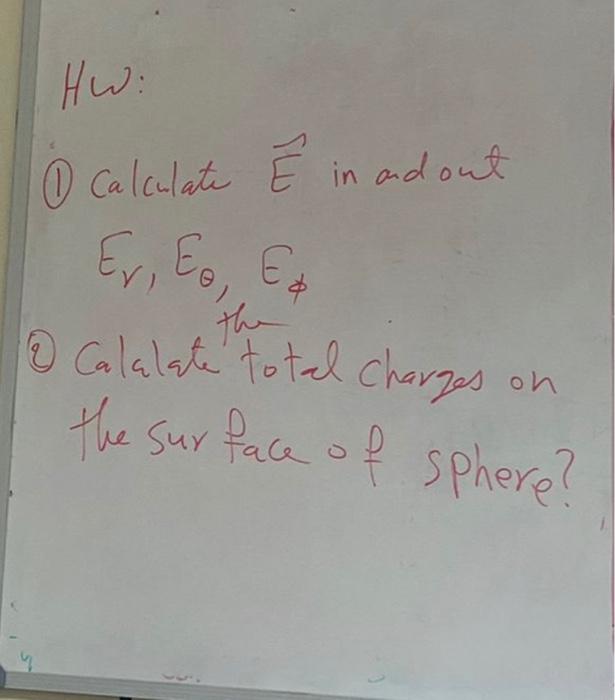 HW:
① Calculate E⃗ in and out
Er, Eθ, Eϕ
② Calclate the total charges on
the surface of sphere?